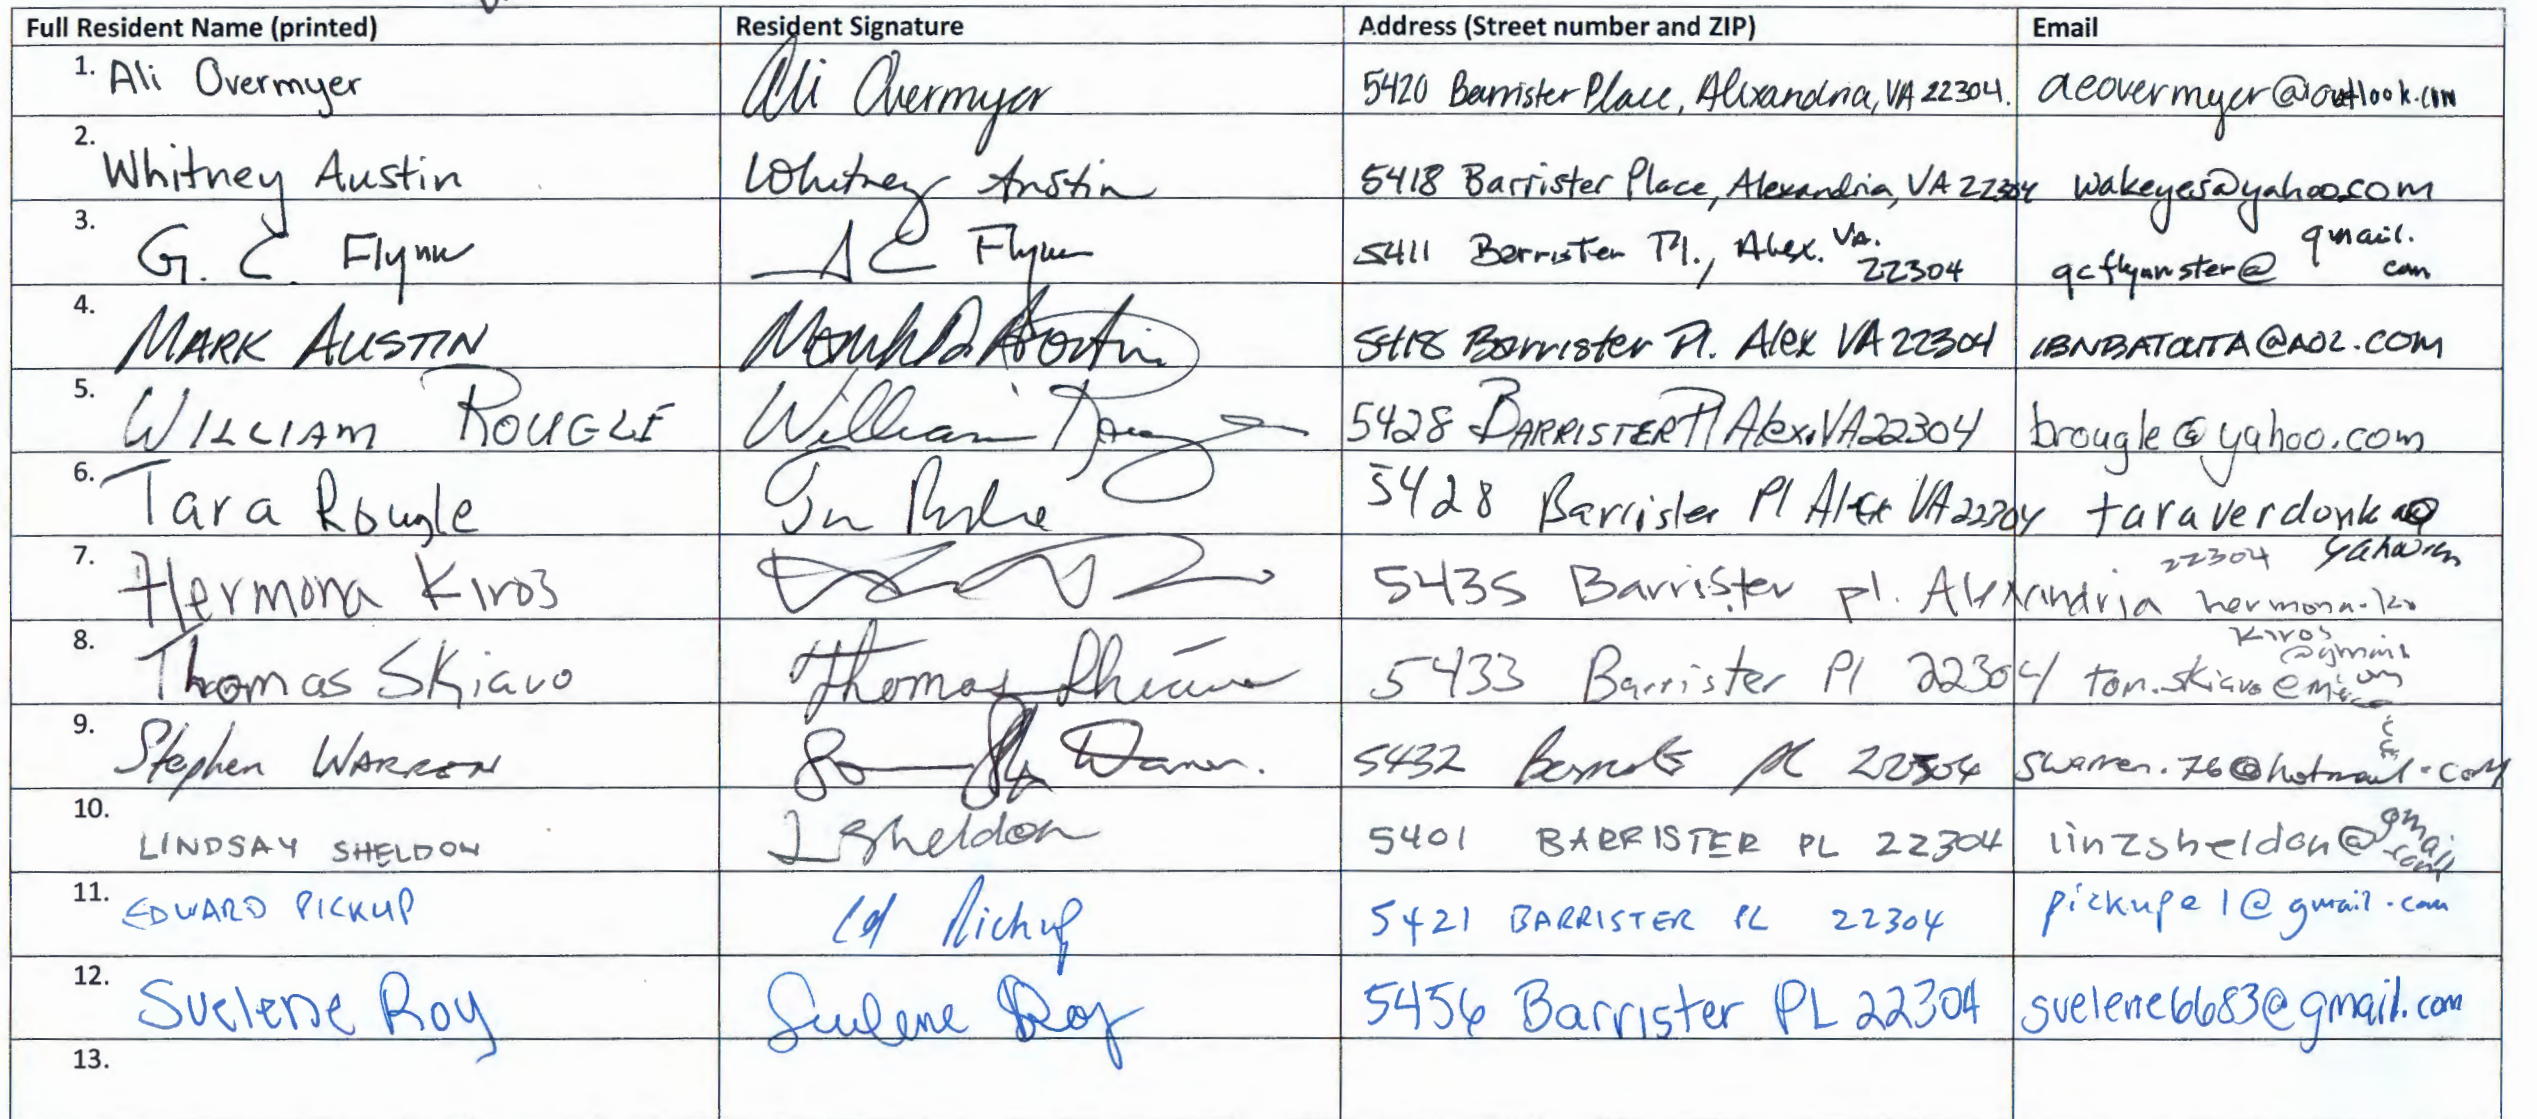 Full Resident Name (printed) Resident Signature Address (Street number and ZIP) Email
1. Ali Overmyer Ali Overmyer 5420 Barrister Place, Alexandria, VA 22304. aeovermyer@outlook.com
2. Whitney Austin Whitney Austin 5418 Barrister Place, Alexandria, VA 22304 wakeyes@yahoo.com
3. G. C. Flynn G C Flynn 5411 Barrister Pl., Alex. VA. 22304 gcflynnster@gmail.com
4. MARK AUSTIN Mark D Austin 5418 Barrister Pl. Alex VA 22304 IBNBATOUTA@AOL.COM
5. WILLIAM ROUGLE William 5428 BARRISTER Pl Alex. VA 22304 brougle@yahoo.com
6. Tara Rougle 5428 Barrister Pl Alex VA 22304 taraverdonk@
yahoo.com
7. Hermona Kiros 5435 Barrister pl. Alexandria 22304 hermona.
kiros
@gmail
8. Thomas Skiavo Thomas Skiavo 5433 Barrister Pl 22304 tom.skiavo@
9. Stephen WARREN Warren. 5432 Barrister Pl 22304 swarren.76@hotmail.com
10. LINDSAY SHELDON L Sheldon 5401 BARRISTER PL 22304 linzsheldon@gmail.com
11. EDWARD PICKUP Ed Pickup 5421 BARRISTER PL 22304 pickupe1@gmail.com
12. Suelene Roy Suelene Roy 5456 Barrister PL 22304 suelene6683@gmail.com
13.